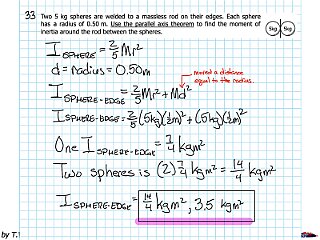 33 Two 5 kg spheres are welded to a massless rod on their edges. Each sphere
has a radius of 0.50 m. Use the parallel axis theorem to find the moment of
inertia around the rod between the spheres.
5kg 5kg
I SPHERE = 2/5 Mr²
d = radius = 0.50m
moved a distance
equal to the radius.
I SPHERE-EDGE = 2/5 Mr² + Md²
I SPHERE-EDGE = 2/5 (5kg)(½m)² + (5kg)(½m)²
One I SPHERE-EDGE = 7/4 kgm²
Two spheres is (2) 7/4 kgm² = 14/4 kgm²
I SPHERE-EDGE = 14/4 kgm², 3.5 kgm²